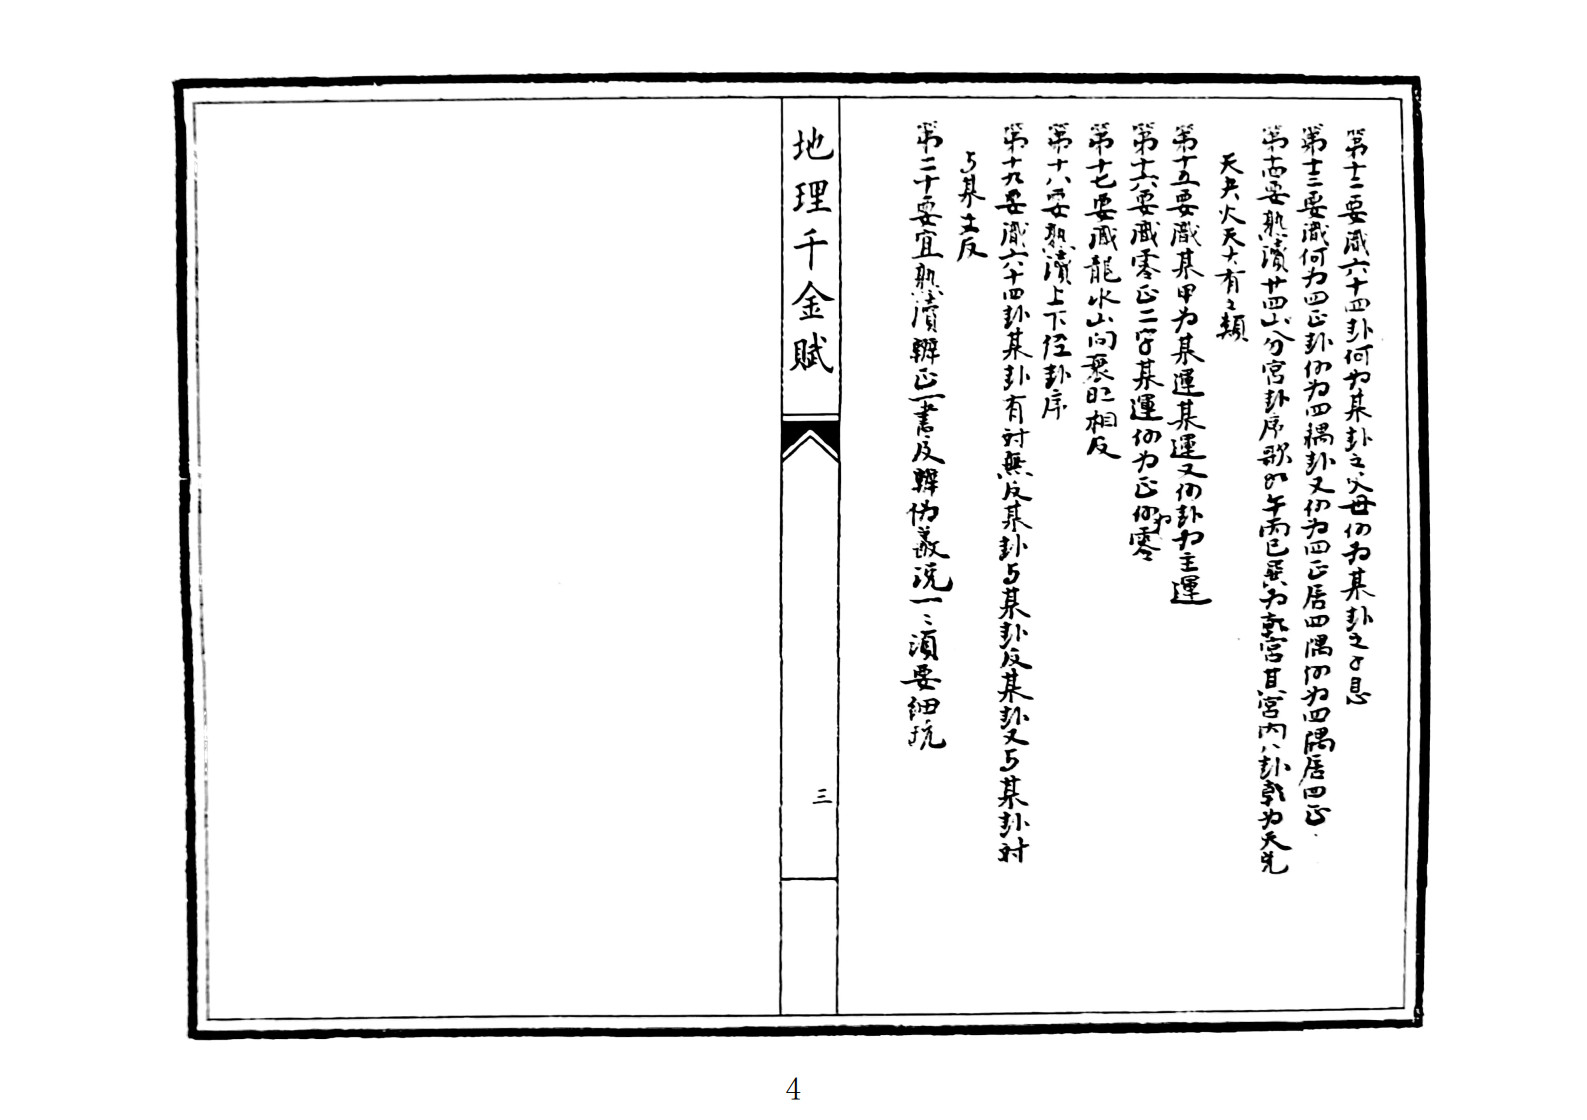 第十二要識六十四卦何为某卦之父母何为某卦之子息
第十三要識何为四正卦何为四隅卦又何为四正居四隅何为四隅居四正
第十四要熟讀廿四山分宮卦序歌如午丙巳巽为乾宮其宮内八卦乾为天兑
天夬火天大有之類
第十五要識某甲为某運某運又何卦为主運
第十六要識零正二字某運何为正何为零
第十七要識龍水山向衰旺相反
第十八要熟讀上下经卦序
第十九要識六十四卦某卦有对無反某卦与某卦反某卦又与某卦对
与某士反
第二十要宜熟讀辨正一書及辨伪叢说一一須要细玩
地理千金賦
三
4